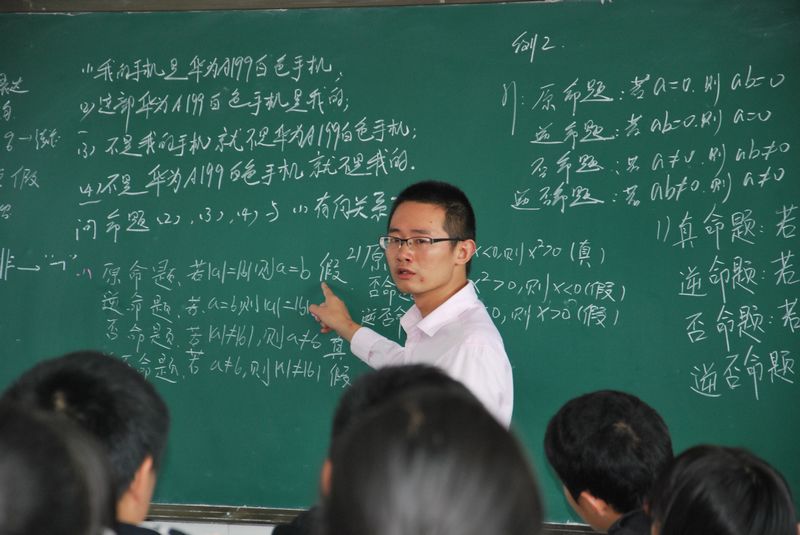 (1) 我的手机是华为A199白色手机;
(2) 这部华为A199白色手机是我的;
(3) 不是我的手机就不是华为A199白色手机;
(4) 不是华为A199白色手机就不是我的.
问命题(2),(3),(4)与(1)有何关系
原命题:若|a|=|b|,则a=b 假
逆命题:若a=b则|a|=|b|
否命题:若|a|≠|b|,则a≠b 真
命题:若a≠b,则|a|≠|b| 假
2) 原
x<0,则x²>0 (真)
否命
x²>0,则x<0 (假)
逆否
则x>0 (假)
例2.
原命题:若a=0.则ab=0
逆命题:若ab=0.则a=0
否命题:若a≠0.则ab≠0
逆否命题:若ab≠0.则a≠0
1) 真命题:若
逆命题:若
否命题:若
逆否命题